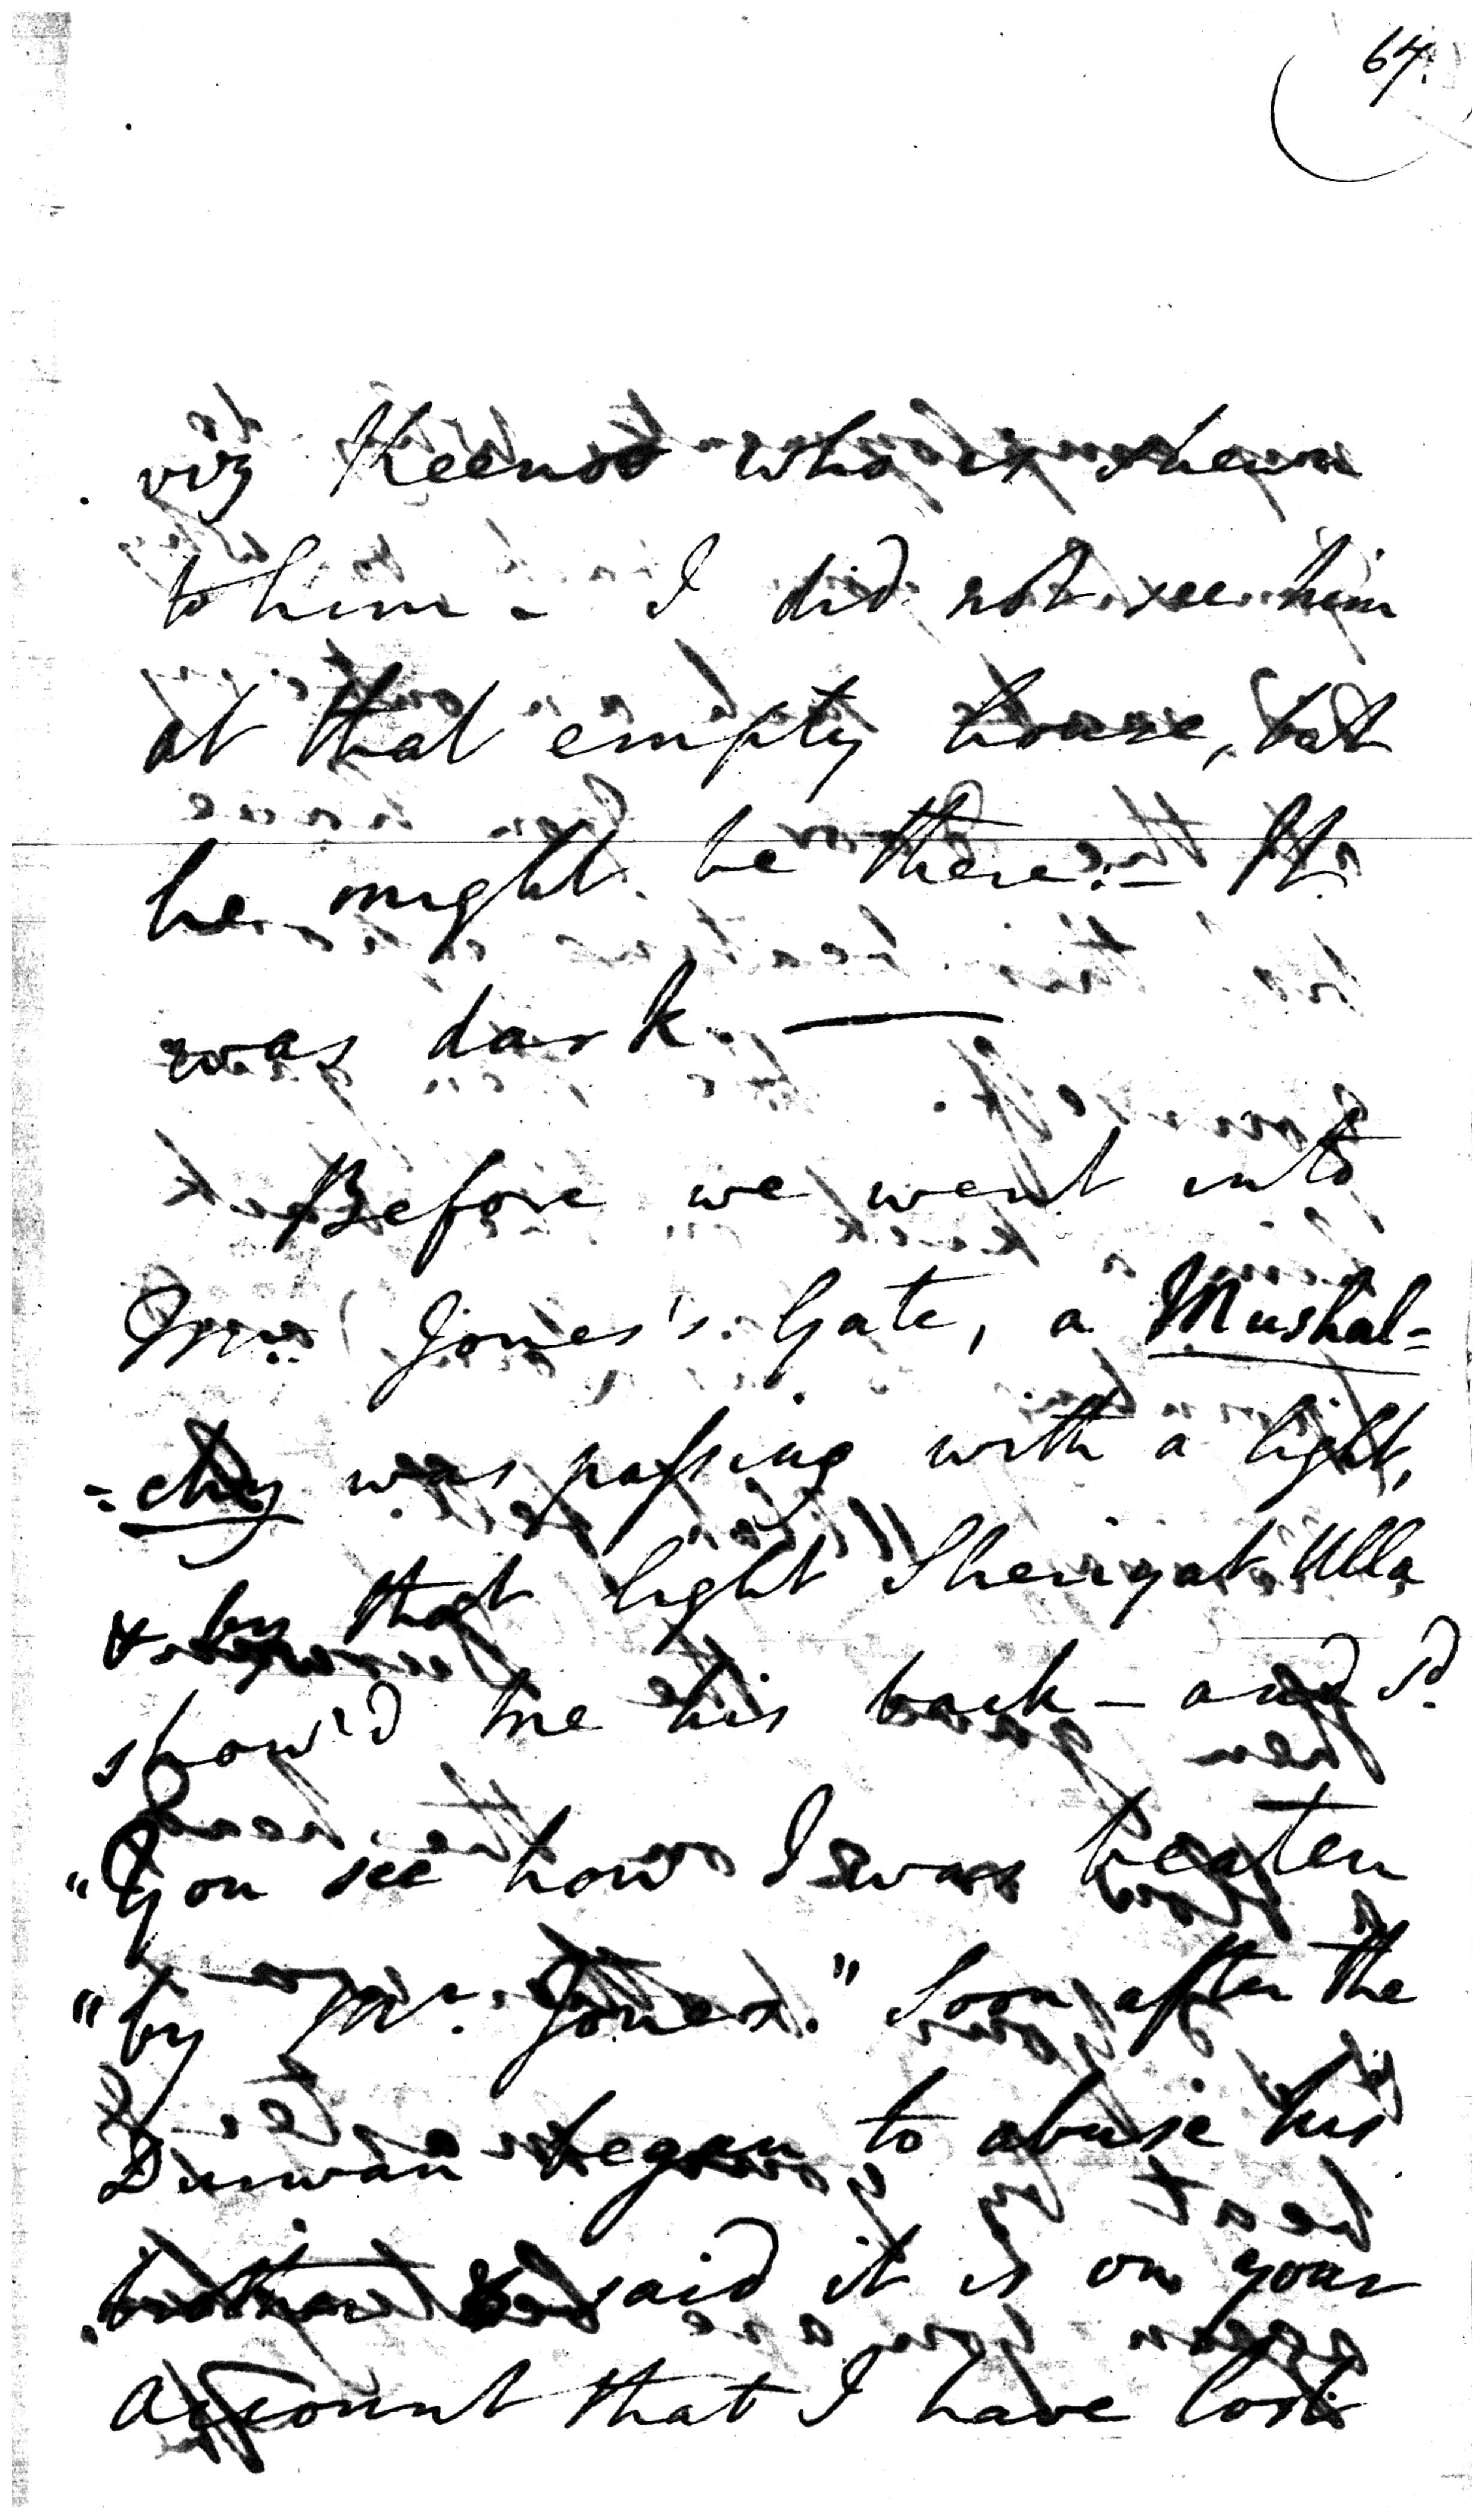 64.
viz Keenoo who is shewn
to him - I did not see him
at that empty house, but
he might be there. - It
was dark. —
Before we went into
Mr. Jones's Gate, a Mushal=
=chy was passing with a light,
& by that light Sheriyat Ulla
show'd me his back - and sd.
"You see how I was beaten
"by Mr. Jones." Soon after the
Durwan began to abuse his
brother & said it is on your
account that I have lost